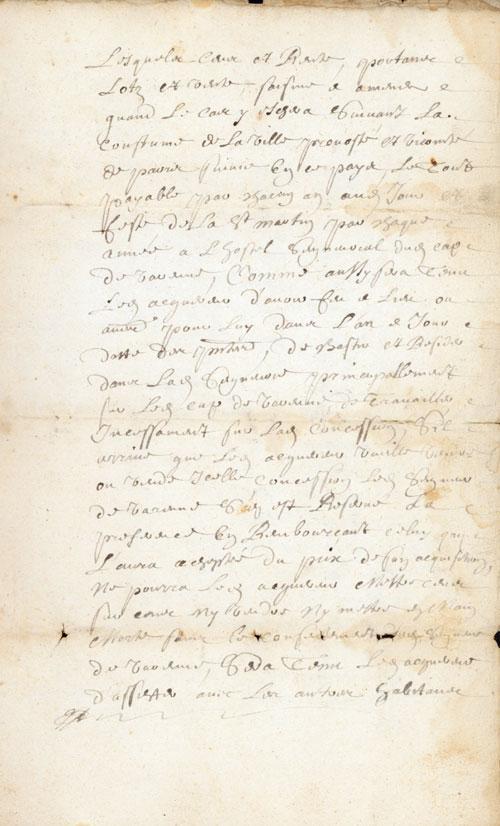 Lesquelz Cens et Rente, portans
Lotz et vente, saisine & amende
quand Le Cas y Escera Suivant La
Coustume de La Ville prevosté et Vicomté
de paris suivie En ce pays, Le tout
payable par chacun an aud Jour et
feste de La St martin par chaque
année a L'hostel Seigneurial dud cap
de Varenne, Comme aussy sera Tenu
Led acquereur d'avoir feu & Lieu ou
autre pour Luy dans L'an & Jour
datte des pntes, de bastir et Resider
dans Lad Seigneurie principallement
sur Led cap de Varenne de Travailler
Incessament sur Lad Concession, Sil
arrive que Led acquereur Veuille Vendre
ou vende Icelle Concession Led Seigneur
de Varenne S'en est Reservé La
preferance En Rembourcant Celuy qui
L'aura acheptée du prix de son acquisition,
Ne pourra Led acquereur Mettre Cens
sur cens Ny Vendre Ny mettre en Main
Morte sans le consentement dud Seigneur
de Varenne, Sera Tenu Led acquereur
d'assister avec Les autres habitans